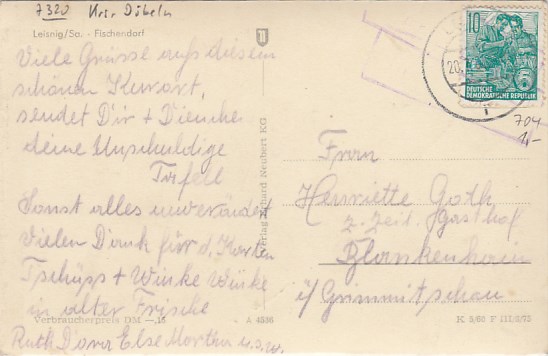 7320 Krs. Döbeln
Leisnig/Sa. - Fischendorf
Viele Grüsse aus diesem
schönen Kurort,
sendet Dir +
deine Unschuldige
Tafell
Sonst alles unverändert
Vielen Dank für d. Karten
Tschüss + Winke Winke
in alter Frische
Ruth Dora Else Martha u.s.w.
Verbraucherpreis DM -,15
A 4536
Verlag Erhard Neubert KG
10
DEUTSCHE
DEMOKRATISCHE REPUBLIK
20.
704
1,-
Frau
Henriette Goth
z. Zeit. Gasthof
Blankenhain
i/ Crimmitschau